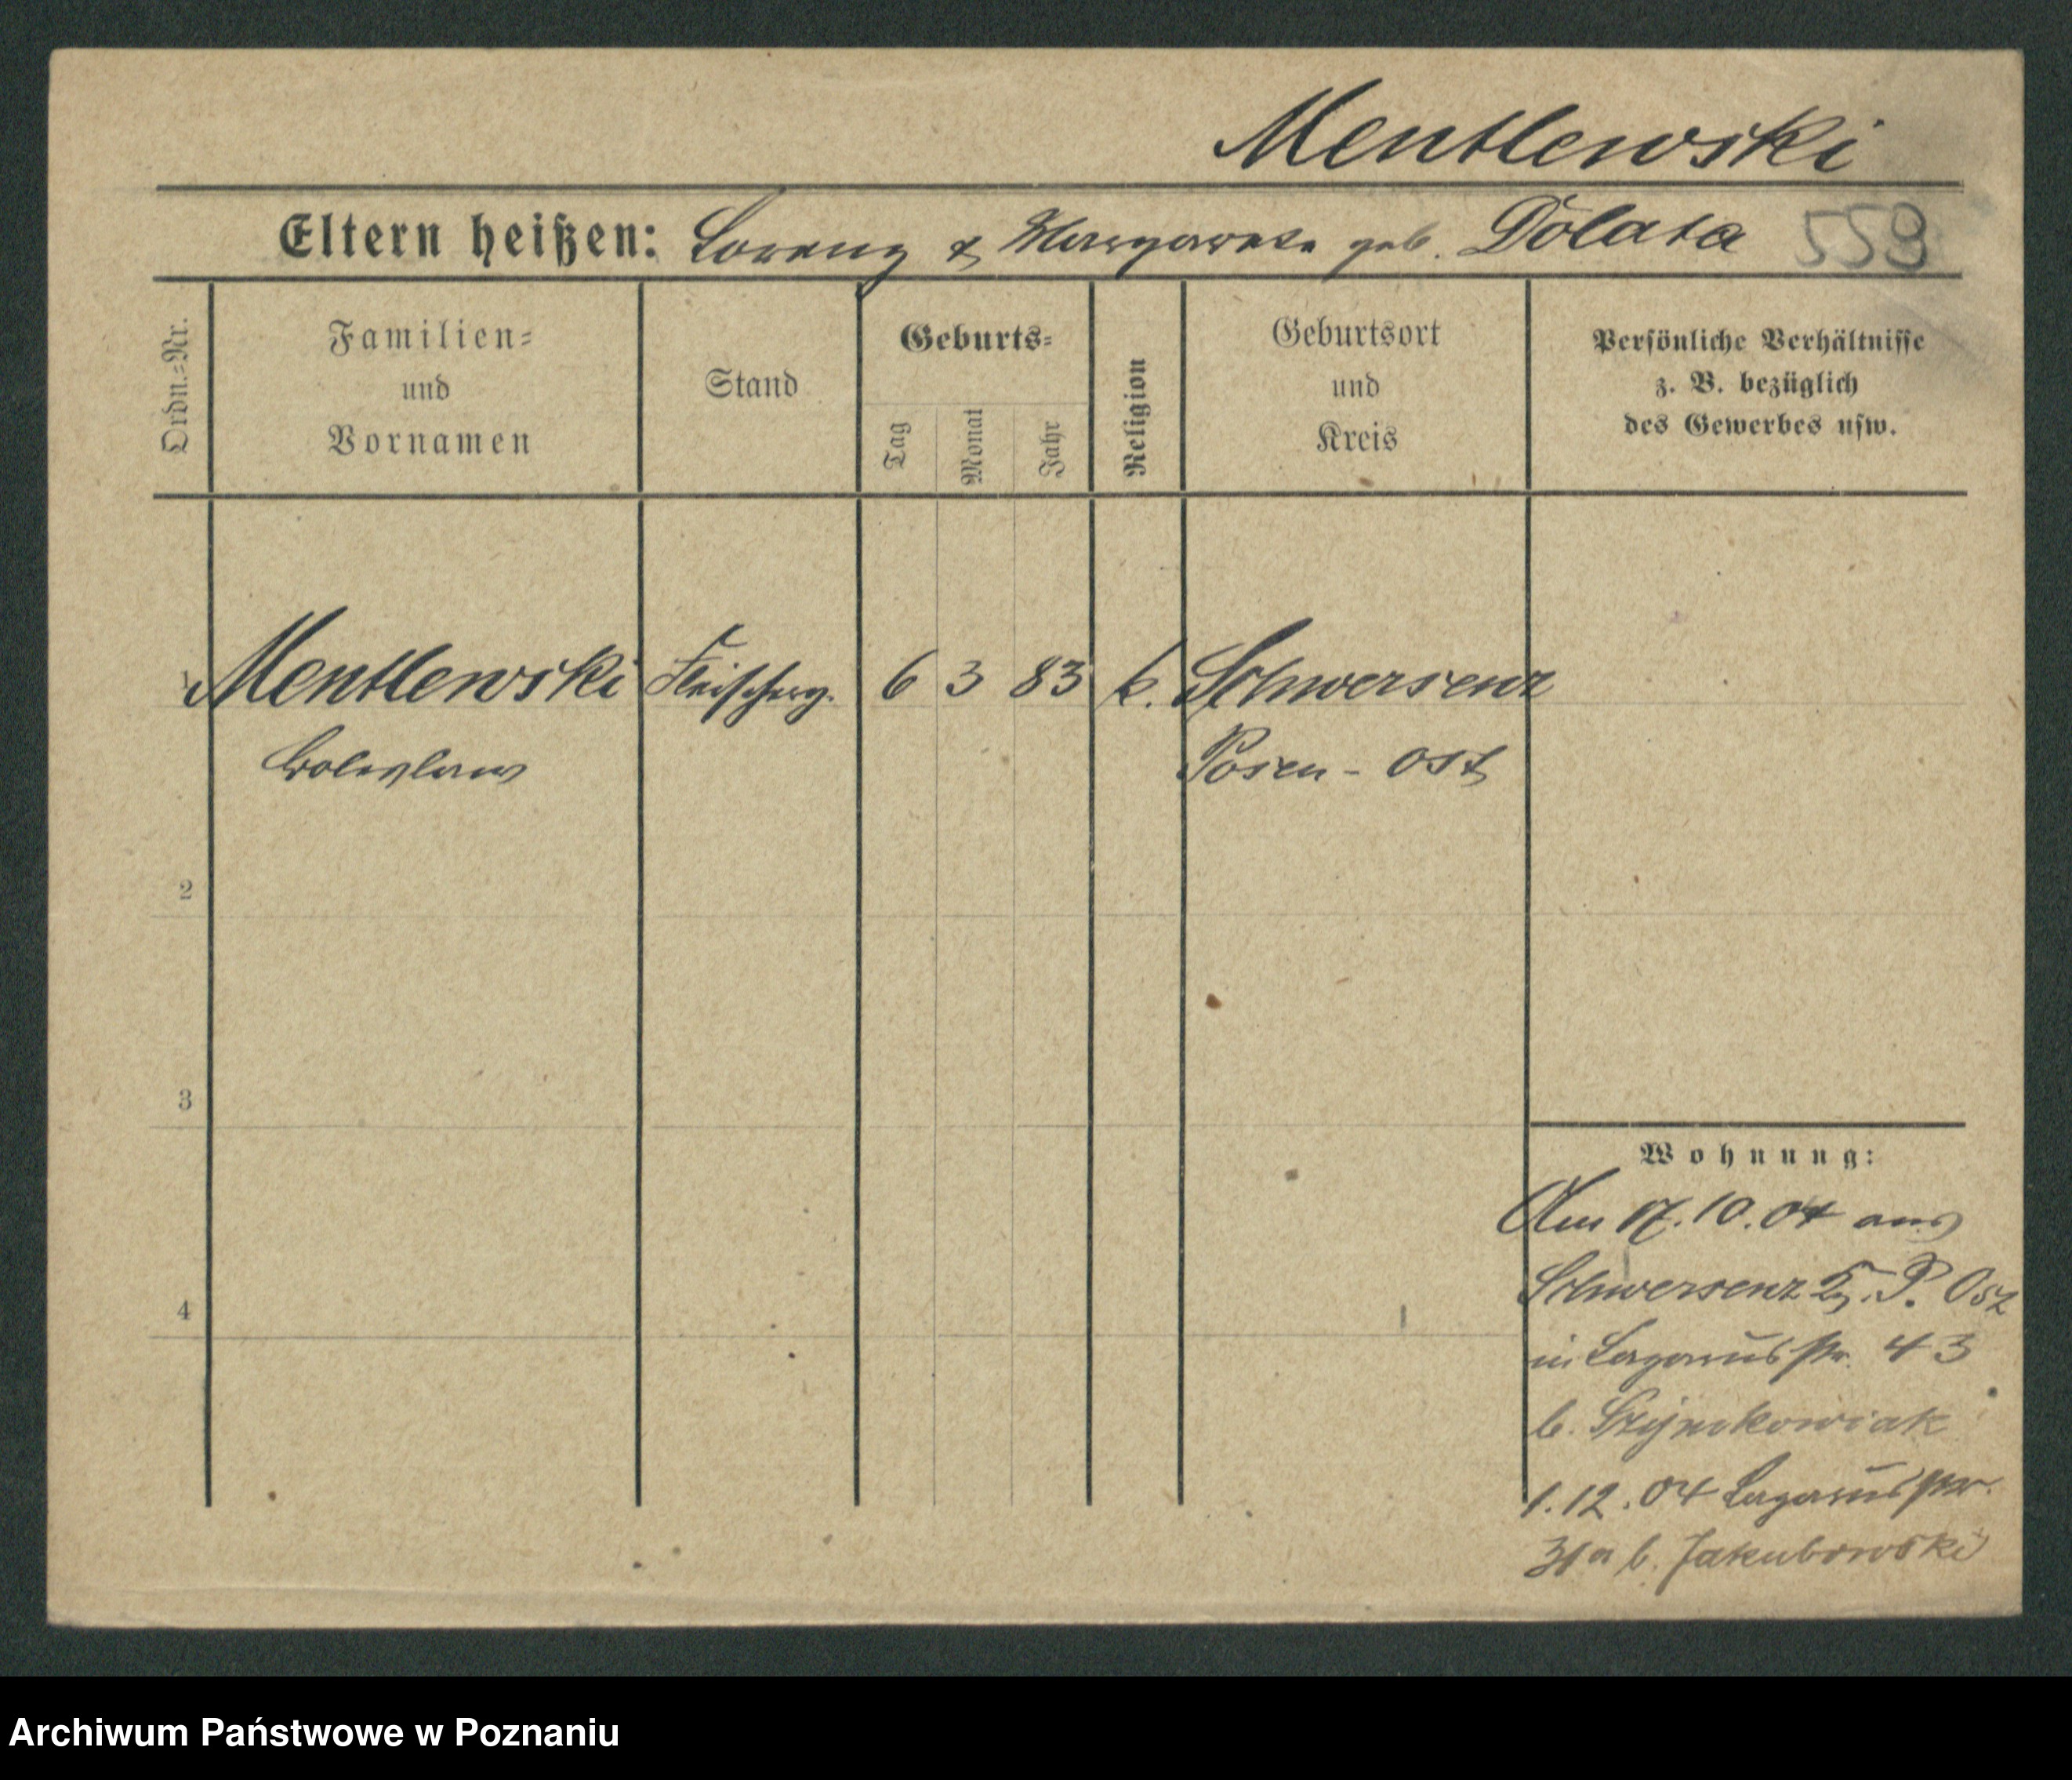 Mentlewski
Eltern heißen: Lorenz & Margarete geb. Dolata 559
Ordn.-Nr.
Familien-
und
Vornamen
Stand
Geburts-
Tag
Monat
Jahr
Religion
Geburtsort
und
Kreis
Persönliche Verhältnisse
z. B. bezüglich
des Gewerbes usw.
1 Mentlewski Fleischerg. 6 3 83 k. Schwersenz
Boleslaw Posen - Ost
2
3
4
Wohnung:
Am 17.10.04 aus
Schwersenz P. Ost
in Lazarusstr. 43
b. Szymkowiak
1.12.04 Lazarusstr.
31a b. Jakubowski
Archiwum Państwowe w Poznaniu